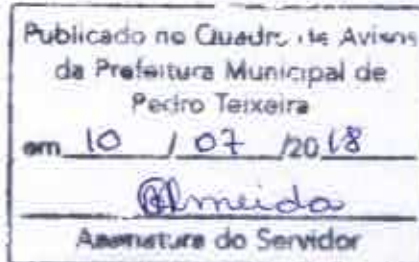 Publicado no Quadro de Avisos
da Prefeitura Municipal de
Pedro Teixeira
em 10 / 07 /2018
Almeida
Assinatura do Servidor